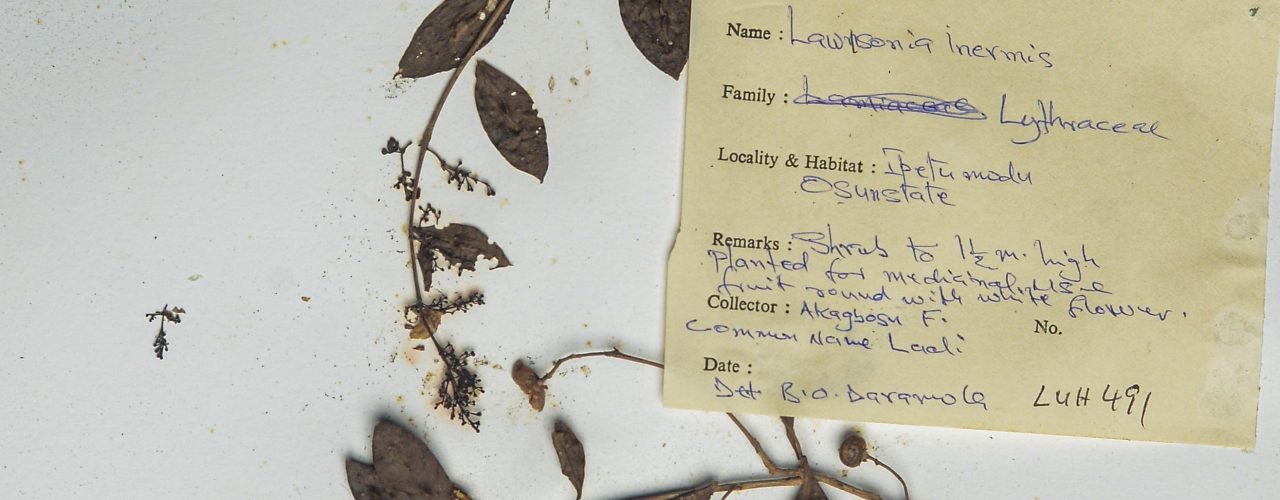 Name : Lawsonia inermis
Family : Lamiaceae Lythraceae
Locality & Habitat : Ipetumodu
Osunstate
Remarks : Shrub to 1½ m. high
Planted for medicinal use
fruit round with white flower.
Collector : Akagbosu F.
No.
Common Name Laali
Date :
Det B.O. Daramola
LUH 491